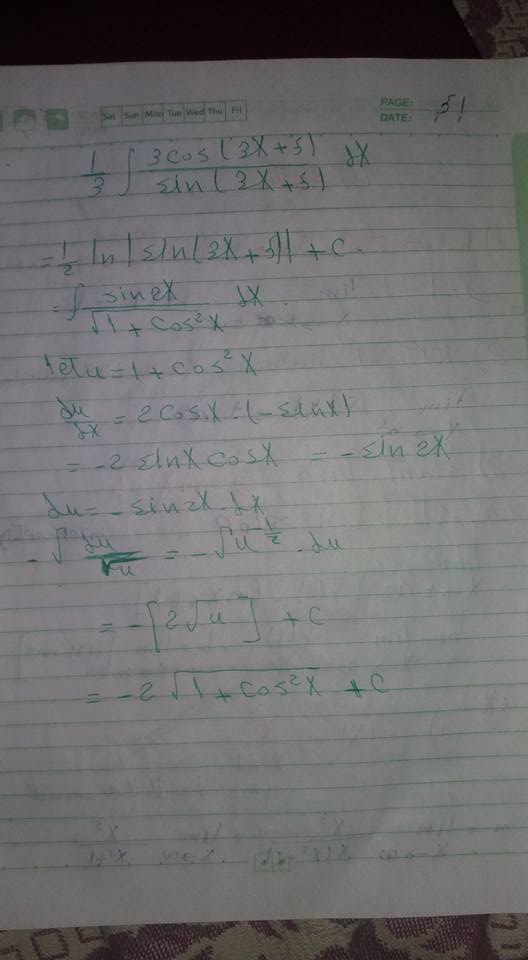 Sat Sun Mon Tue Wed Thu Fri
PAGE: 51
DATE:
1/3 ∫ 3cos(3x+5) / sin(3x+5) dx
= 1/2 ln|sin(3x+5)| + C.
= ∫ sin2x / √(1 + cos²x) dx.
let u = 1 + cos²x
du/dx = 2cosx · (-sinx)
= -2 sinx cosx = - sin 2x
du = - sin2x · dx
- ∫ du/√u = - ∫ u^(-1/2) · du
= -[2√u] + C
= -2 √(1 + cos²x) + C